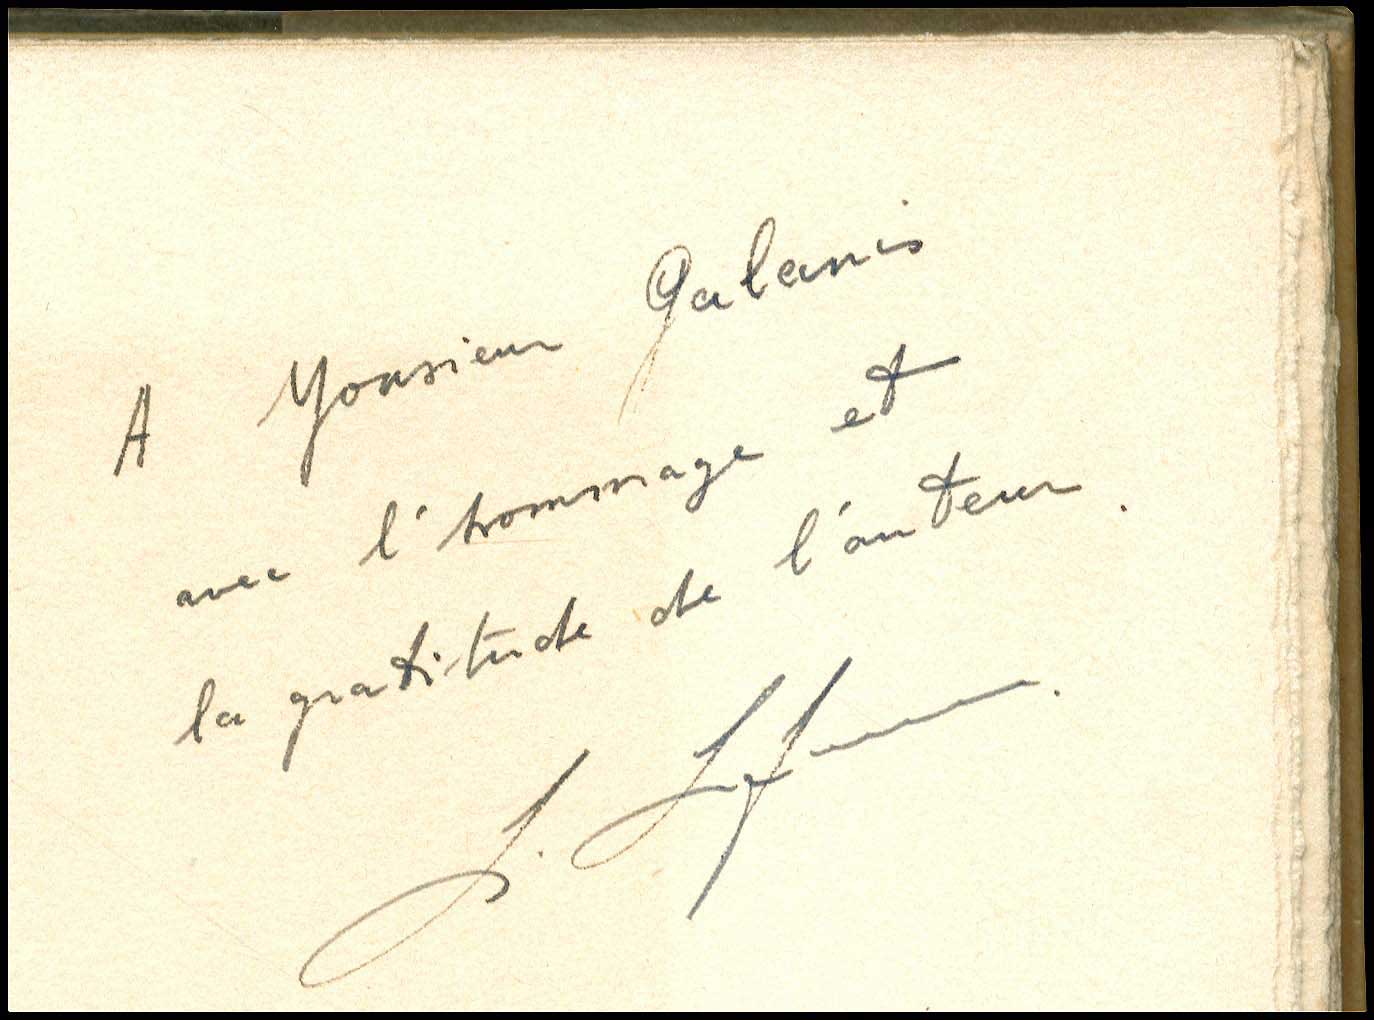 A Monsieur Galanis
avec l'hommage et
la gratitude de l'auteur.